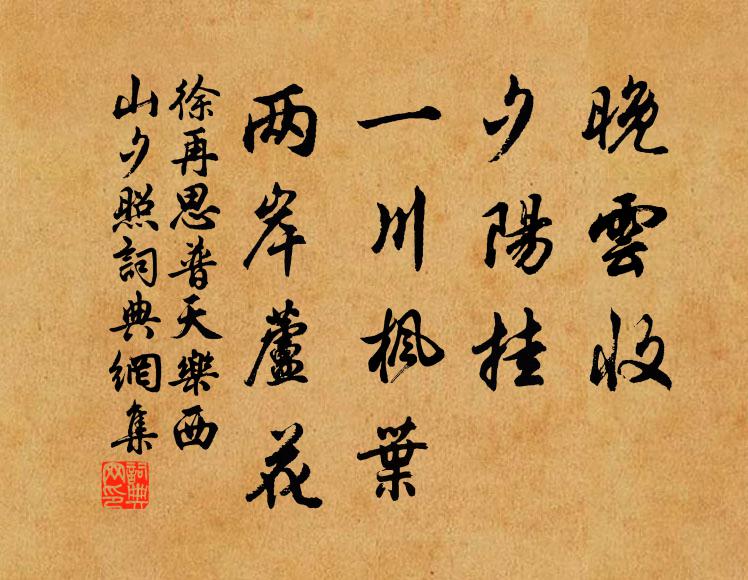 晚雲收
夕陽挂
一川枫葉
两岸蘆花
徐再思普天樂西
山夕照詞典網集
詞典
网印